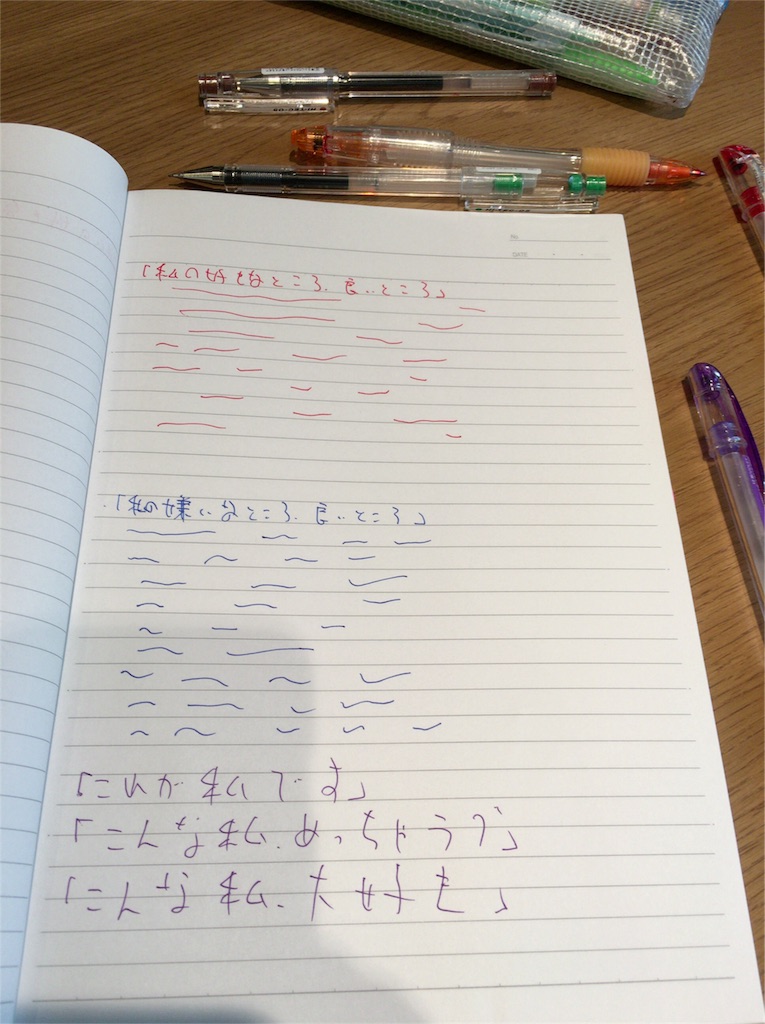 「私の好きなところ、良いところ」
「私の嫌いなところ、良いところ」
「これが私です」
「こんな私、めっちゃラブ」
「こんな私、大好き」
No.
DATE